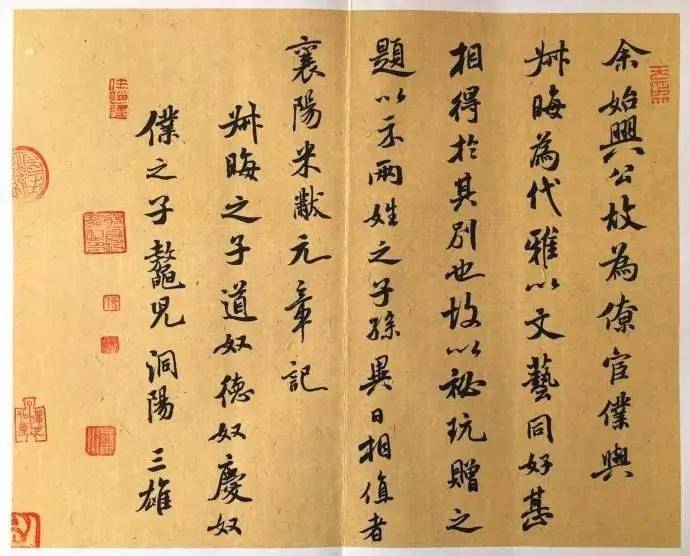 余始興公故為僚官僕與
叔晦為代雅以文藝同好甚
相得於其別也故以祕玩贈之
題以示兩姓之子孫異日相值者
襄陽米黻元章記
叔晦之子道奴德奴慶奴
僕之子鼇兒洞陽三雄